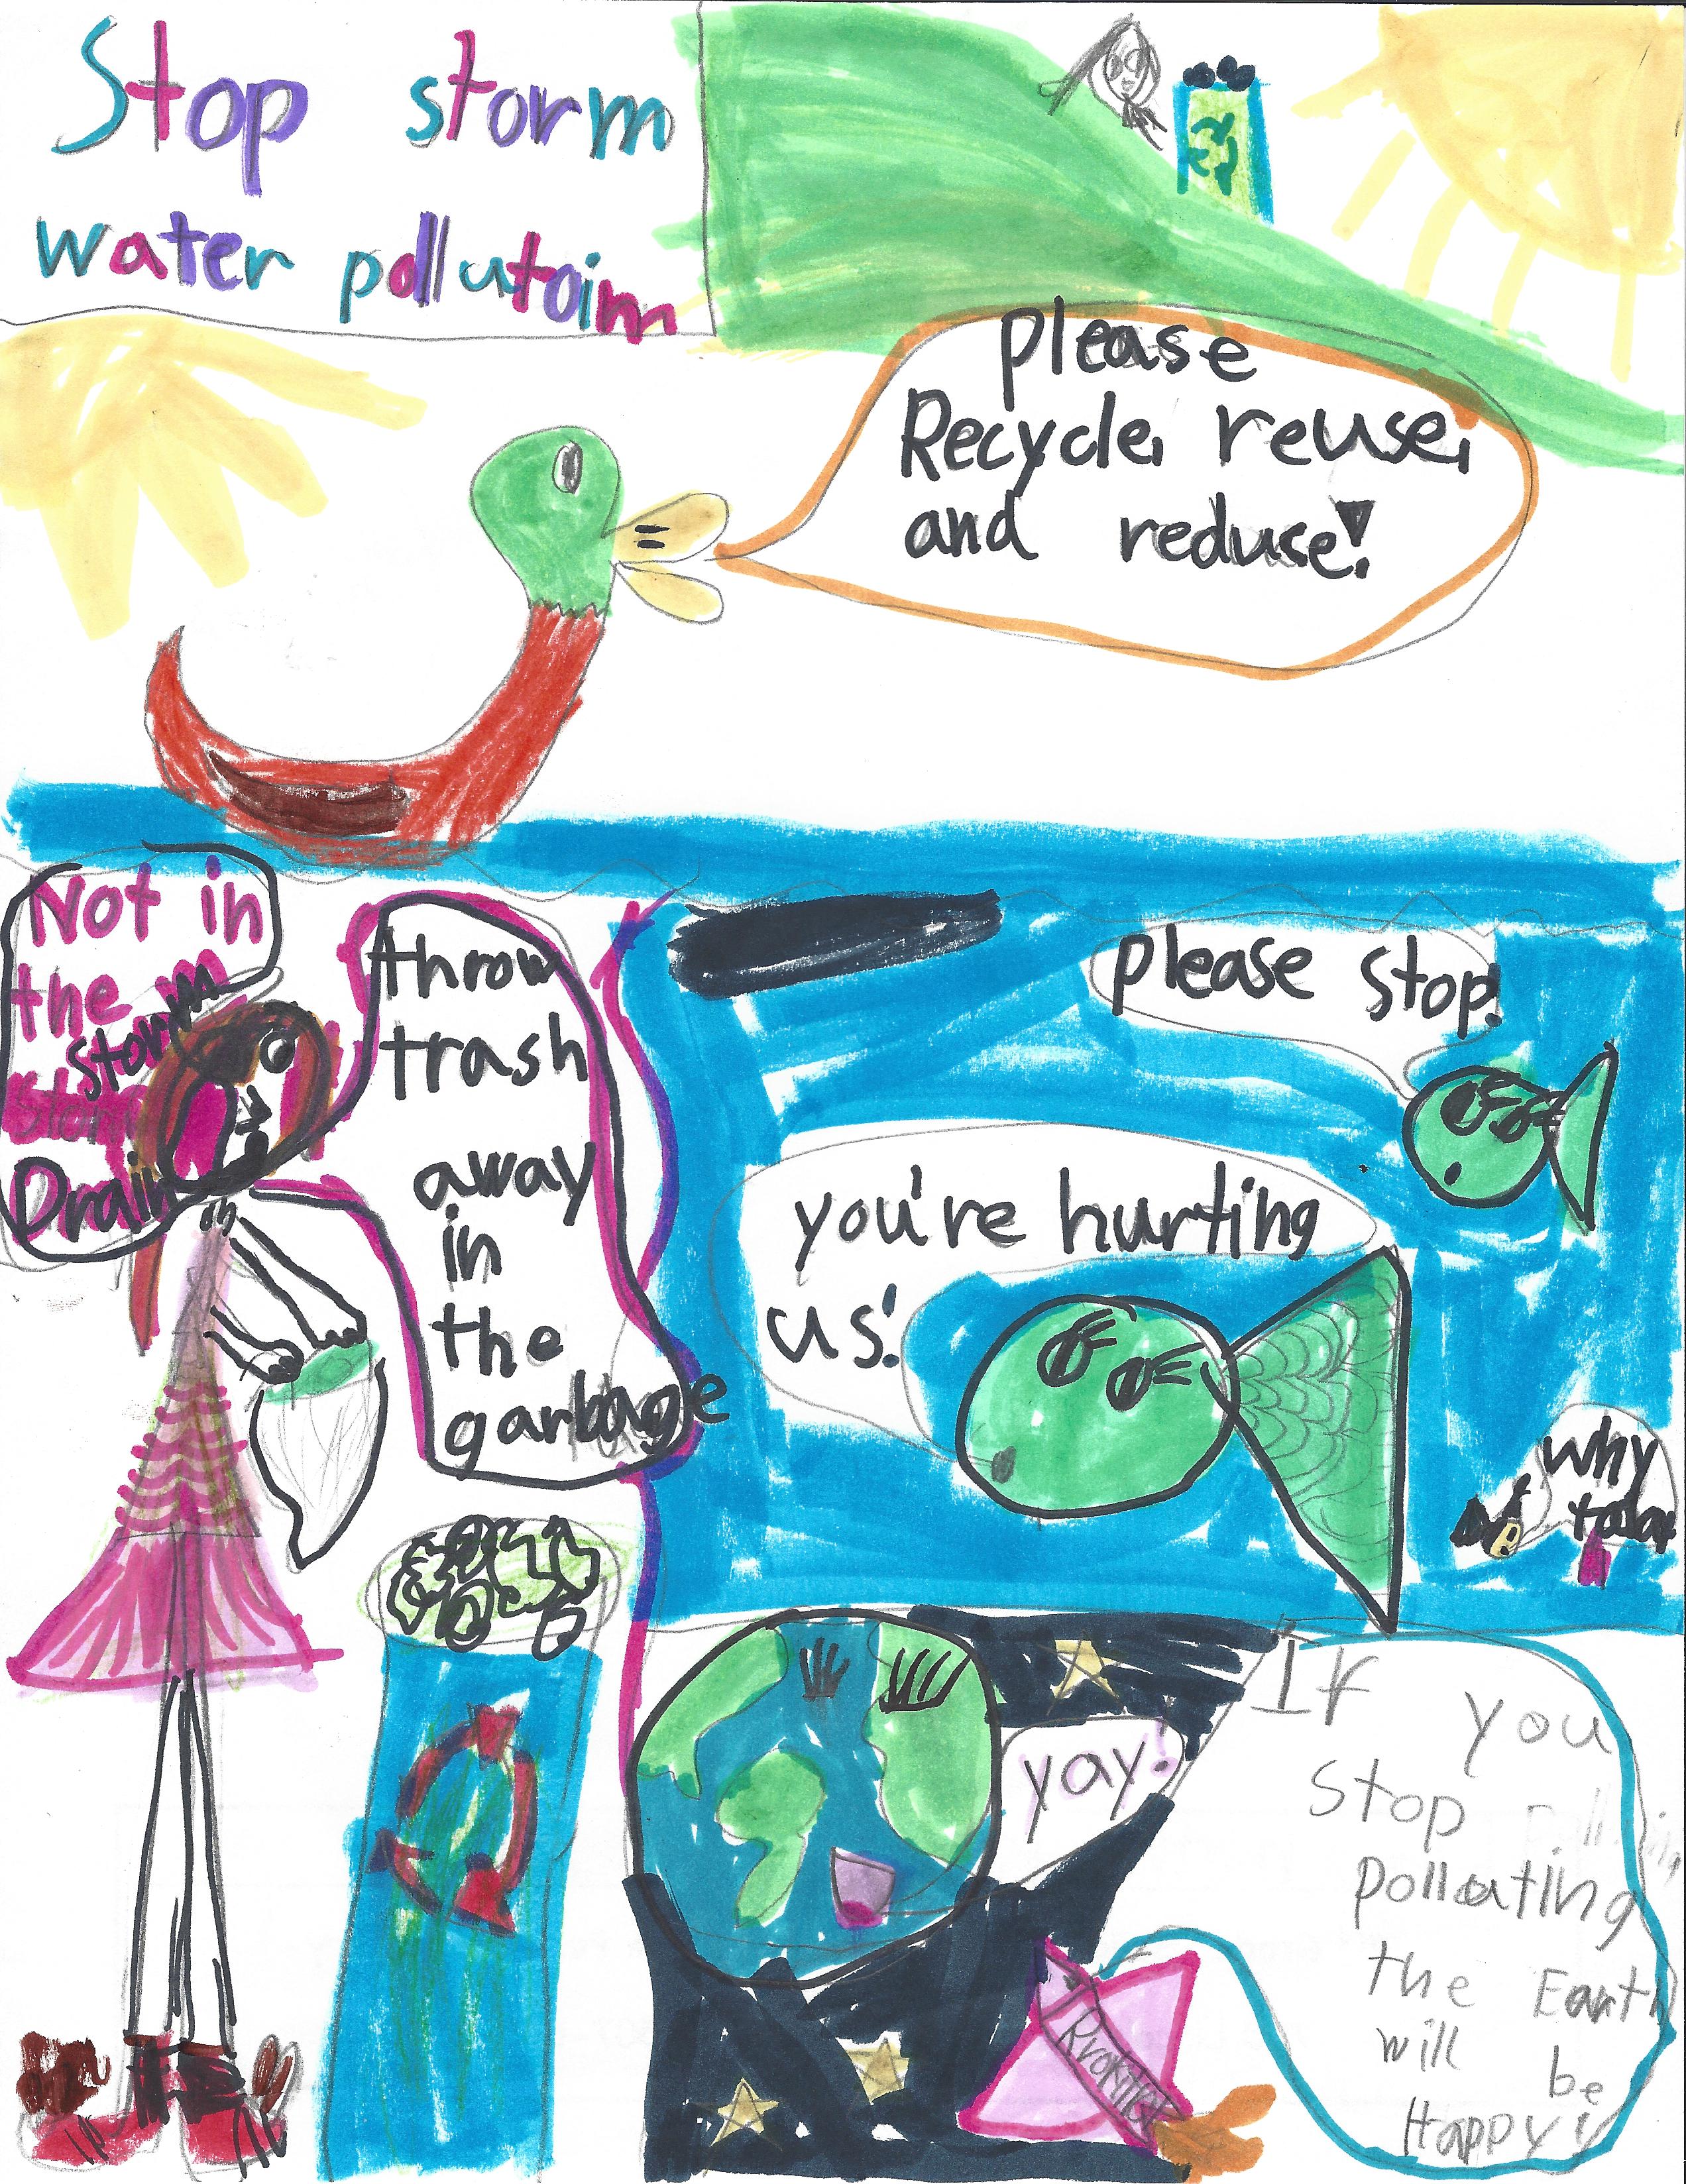 Stop storm
water pollutoin
please
Recycle, reuse,
and reduse!
Not in
the
storm
Drain
throw
trash
away
in
the
garbage
please stop!
you're hurting
us!
why
today
yay!
If you
stop
polluting
the Earth
will be
Happy!